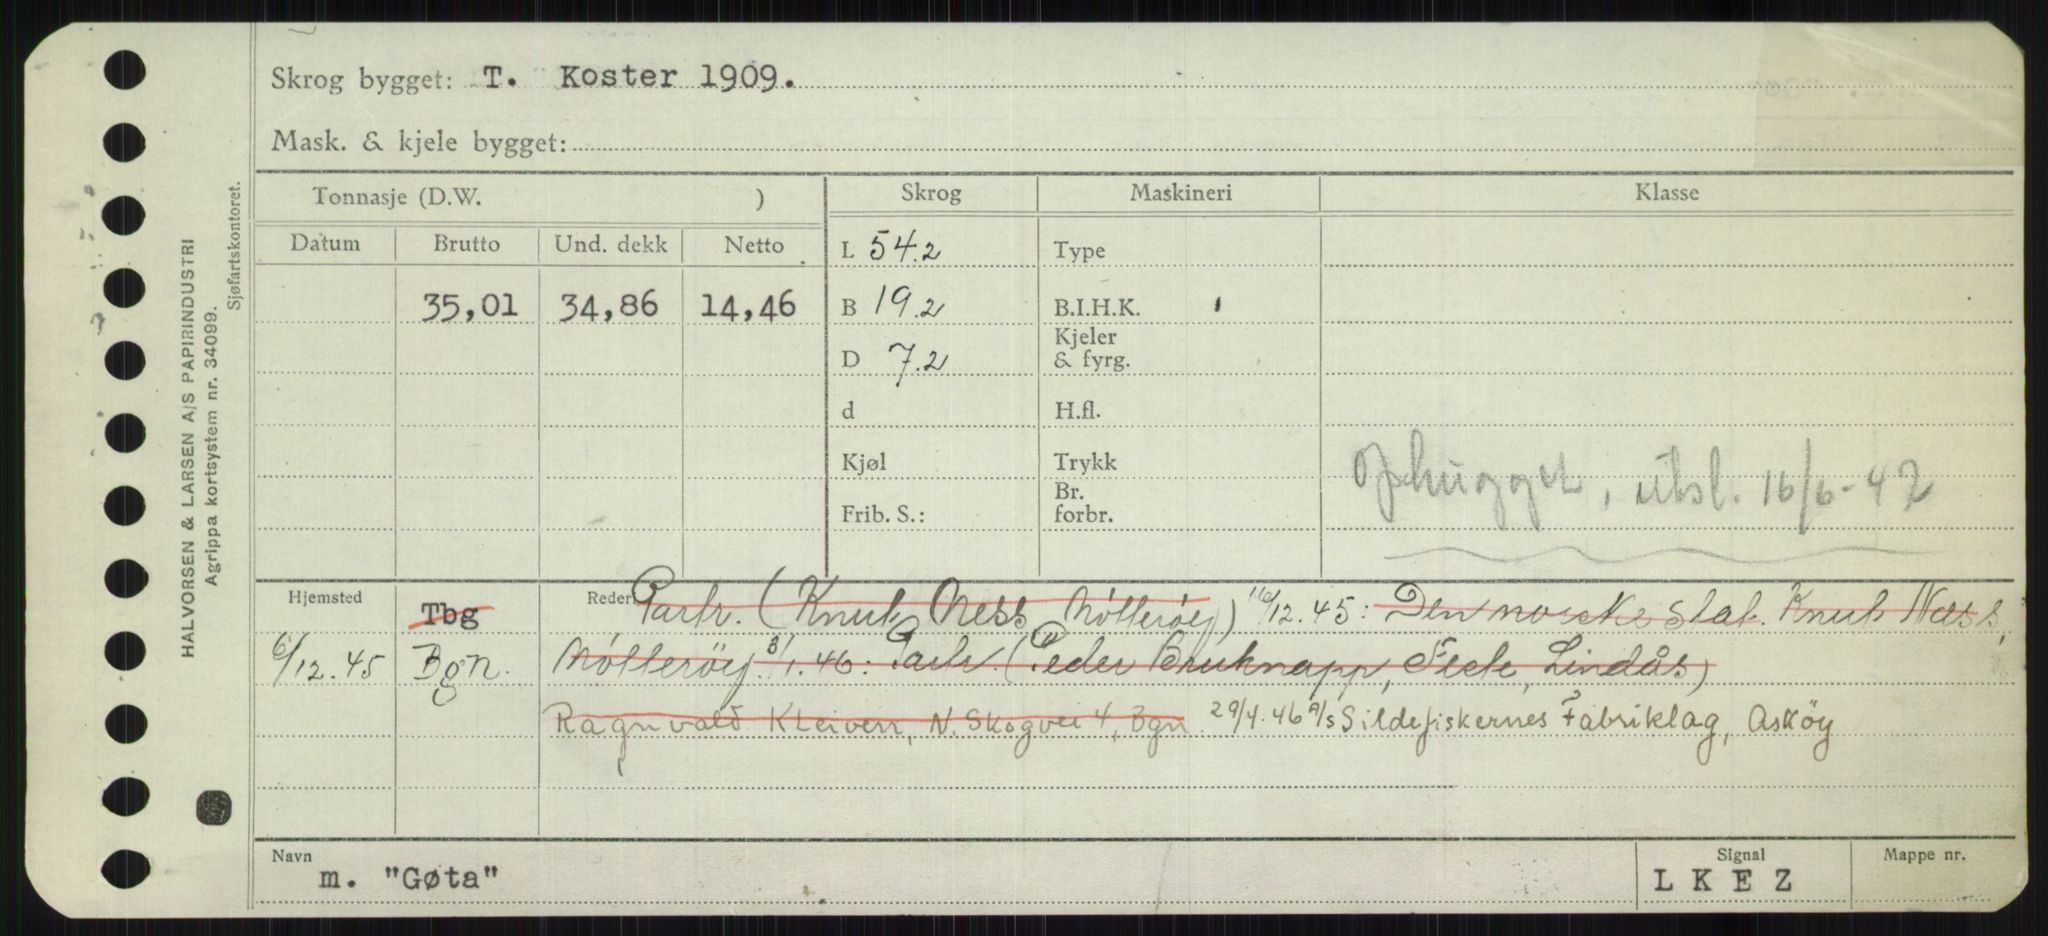 Skrog bygget: T. Koster 1909.
Mask. & kjele bygget:
Tonnasje (D.W. ) Skrog Maskineri Klasse
Datum Brutto Und. dekk Netto L 54.2 Type
35,01 34,86 14,46 B 19.2 B.I.H.K.
Kjeler
D 7.2 & fyrg.
d H.fl.
Kjøl Trykk
Ophugget, utsl. 16/6-42
Br.
Frib. S.: forbr.
Hjemsted Tbg Rederi Partr. (Knut Ness Nötteröy) 12.45: Den norske stat. Knut Næss,
6/12.45 Bgn. Nötteröy. 8/1.46: Partr. (Peder Bruknapp, Lindås)
Ragnvald Kleiven, N. Skogvei 4, Bgn 29/4.46 A/S Sildefiskernes Fabriklag, Asköy
Navn Signal Mappe nr.
m. "Gøta" LKEZ
HALVORSEN & LARSEN A/S PAPIRINDUSTRI
Agrippa kortsystem nr. 34099.
Sjøfartskontoret.